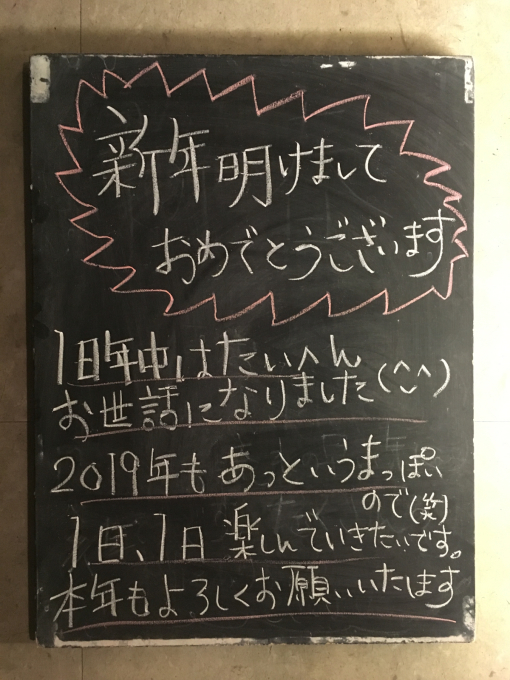 新年明けまして
おめでとうございます
旧年中はたいへん
お世話になりました(^◡^)
2019年もあっというまっぽい
ので(笑)
1日、1日 楽しんでいきたいです。
本年もよろしくお願いいたします